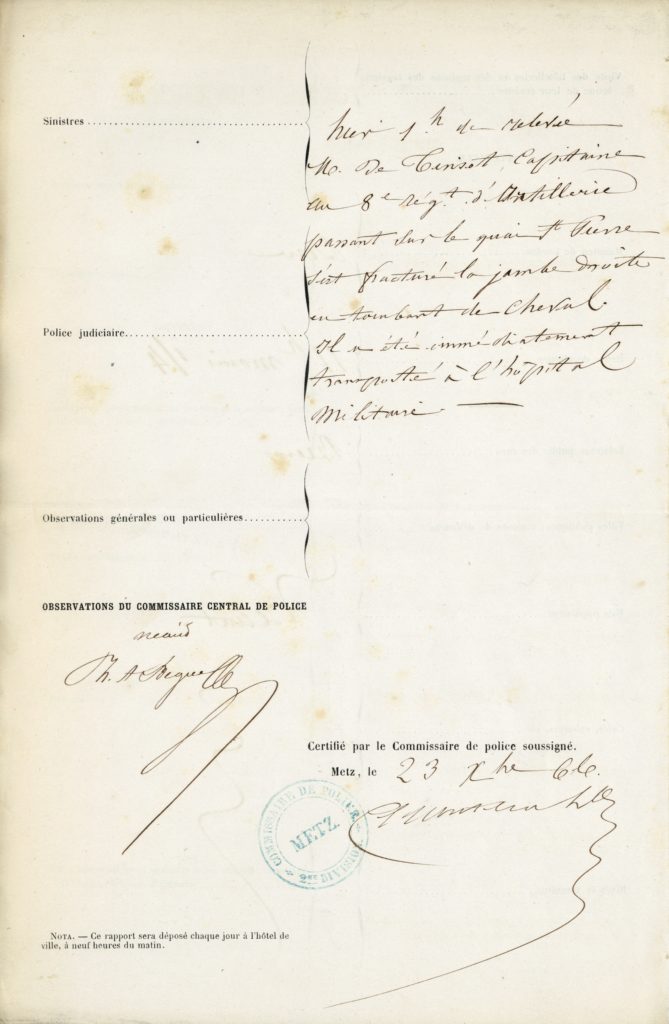 Sinistres
hier 1 h de relevée
M. De Tinsot, Capitaine
au 8e régt. d'Artillerie
passant sur le quai St Pierre
s'est fracturé la jambe droite
en tombant de cheval
Police judiciaire
Il a été immédiatement
transporté à l'hôpital
Militaire —
Observations générales ou particulières
OBSERVATIONS DU COMMISSAIRE CENTRAL DE POLICE
néant
Certifié par le Commissaire de police soussigné.
Metz, le 23 Xbre 66.
COMMISSAIRE DE POLICE
METZ
2me DIVISION
NOTA. — Ce rapport sera déposé chaque jour à l'hôtel de
ville, à neuf heures du matin.